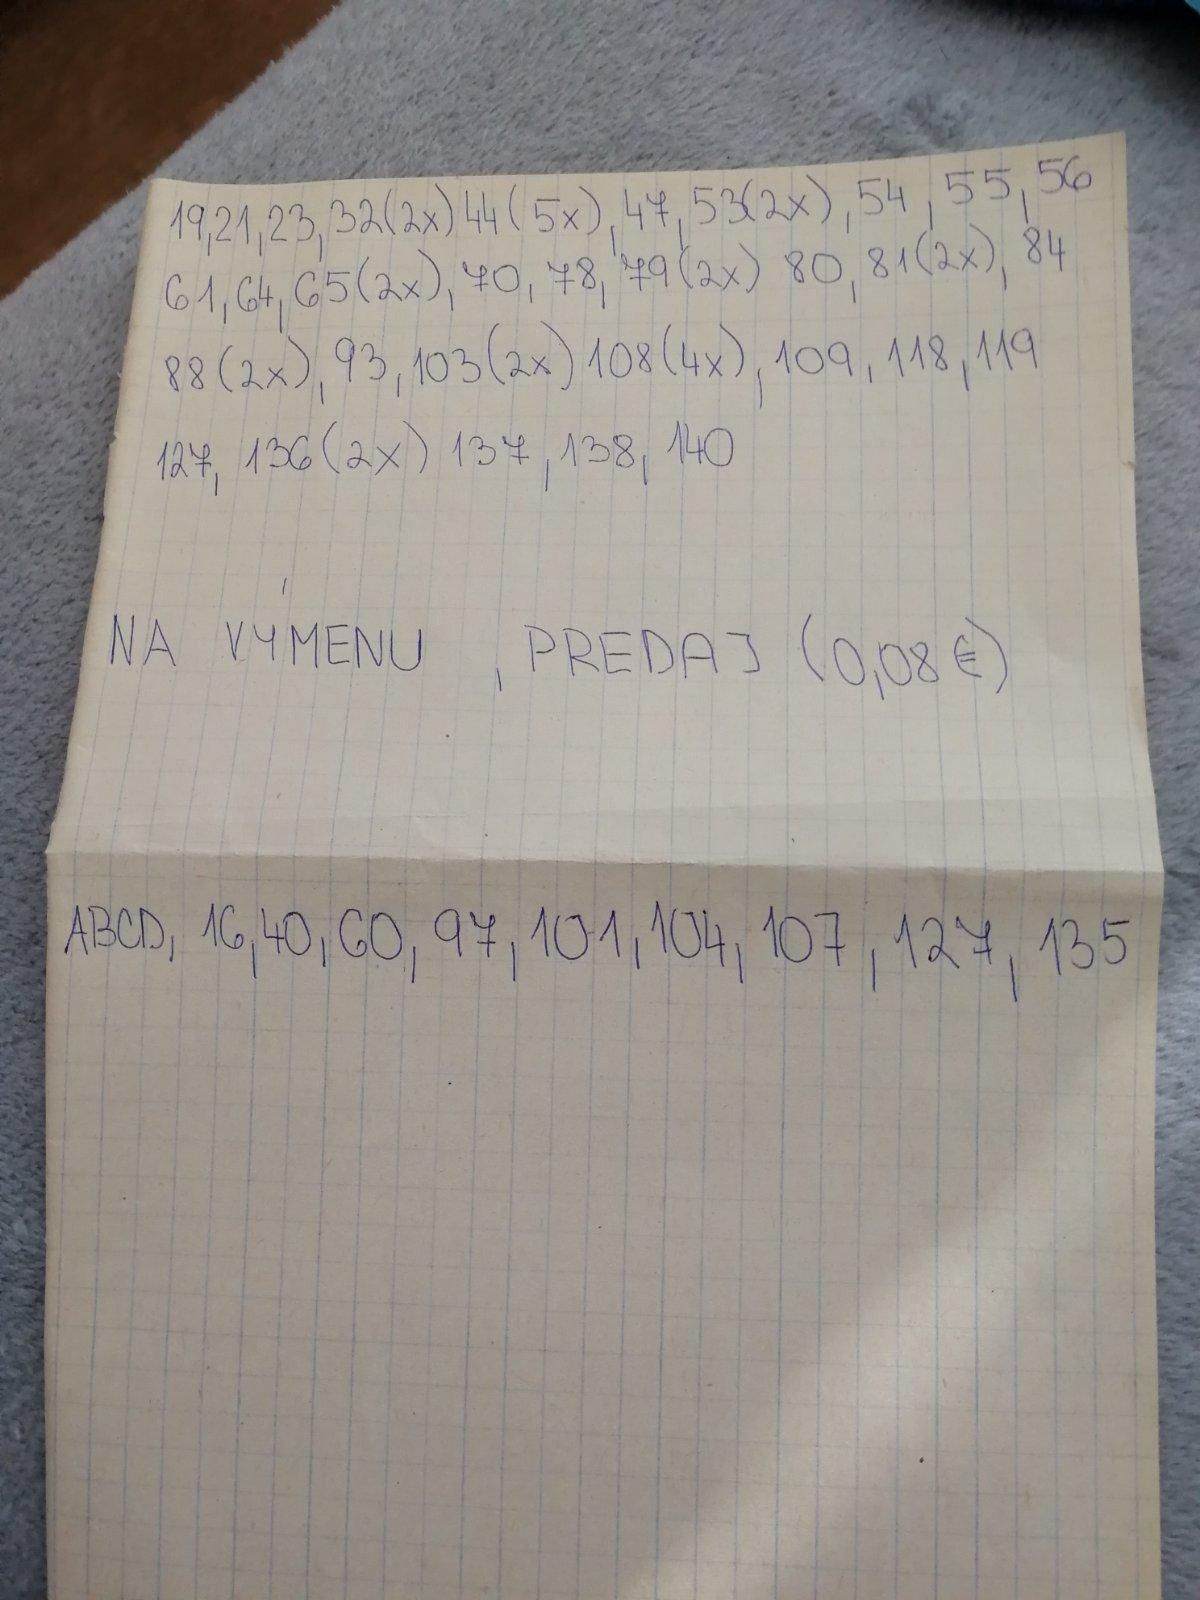 19,21,23,32(2x)44(5x),47,53(2x),54,55,56
61,64,65(2x),70,78,79(2x) 80,81(2x),84
88(2x),93,103(2x)108(4x),109,118,119
127, 136(2x) 137,138,140
NA VÝMENU, PREDAJ (0,08€)
ABCD, 16,40,60,97,101,104,107,127,135